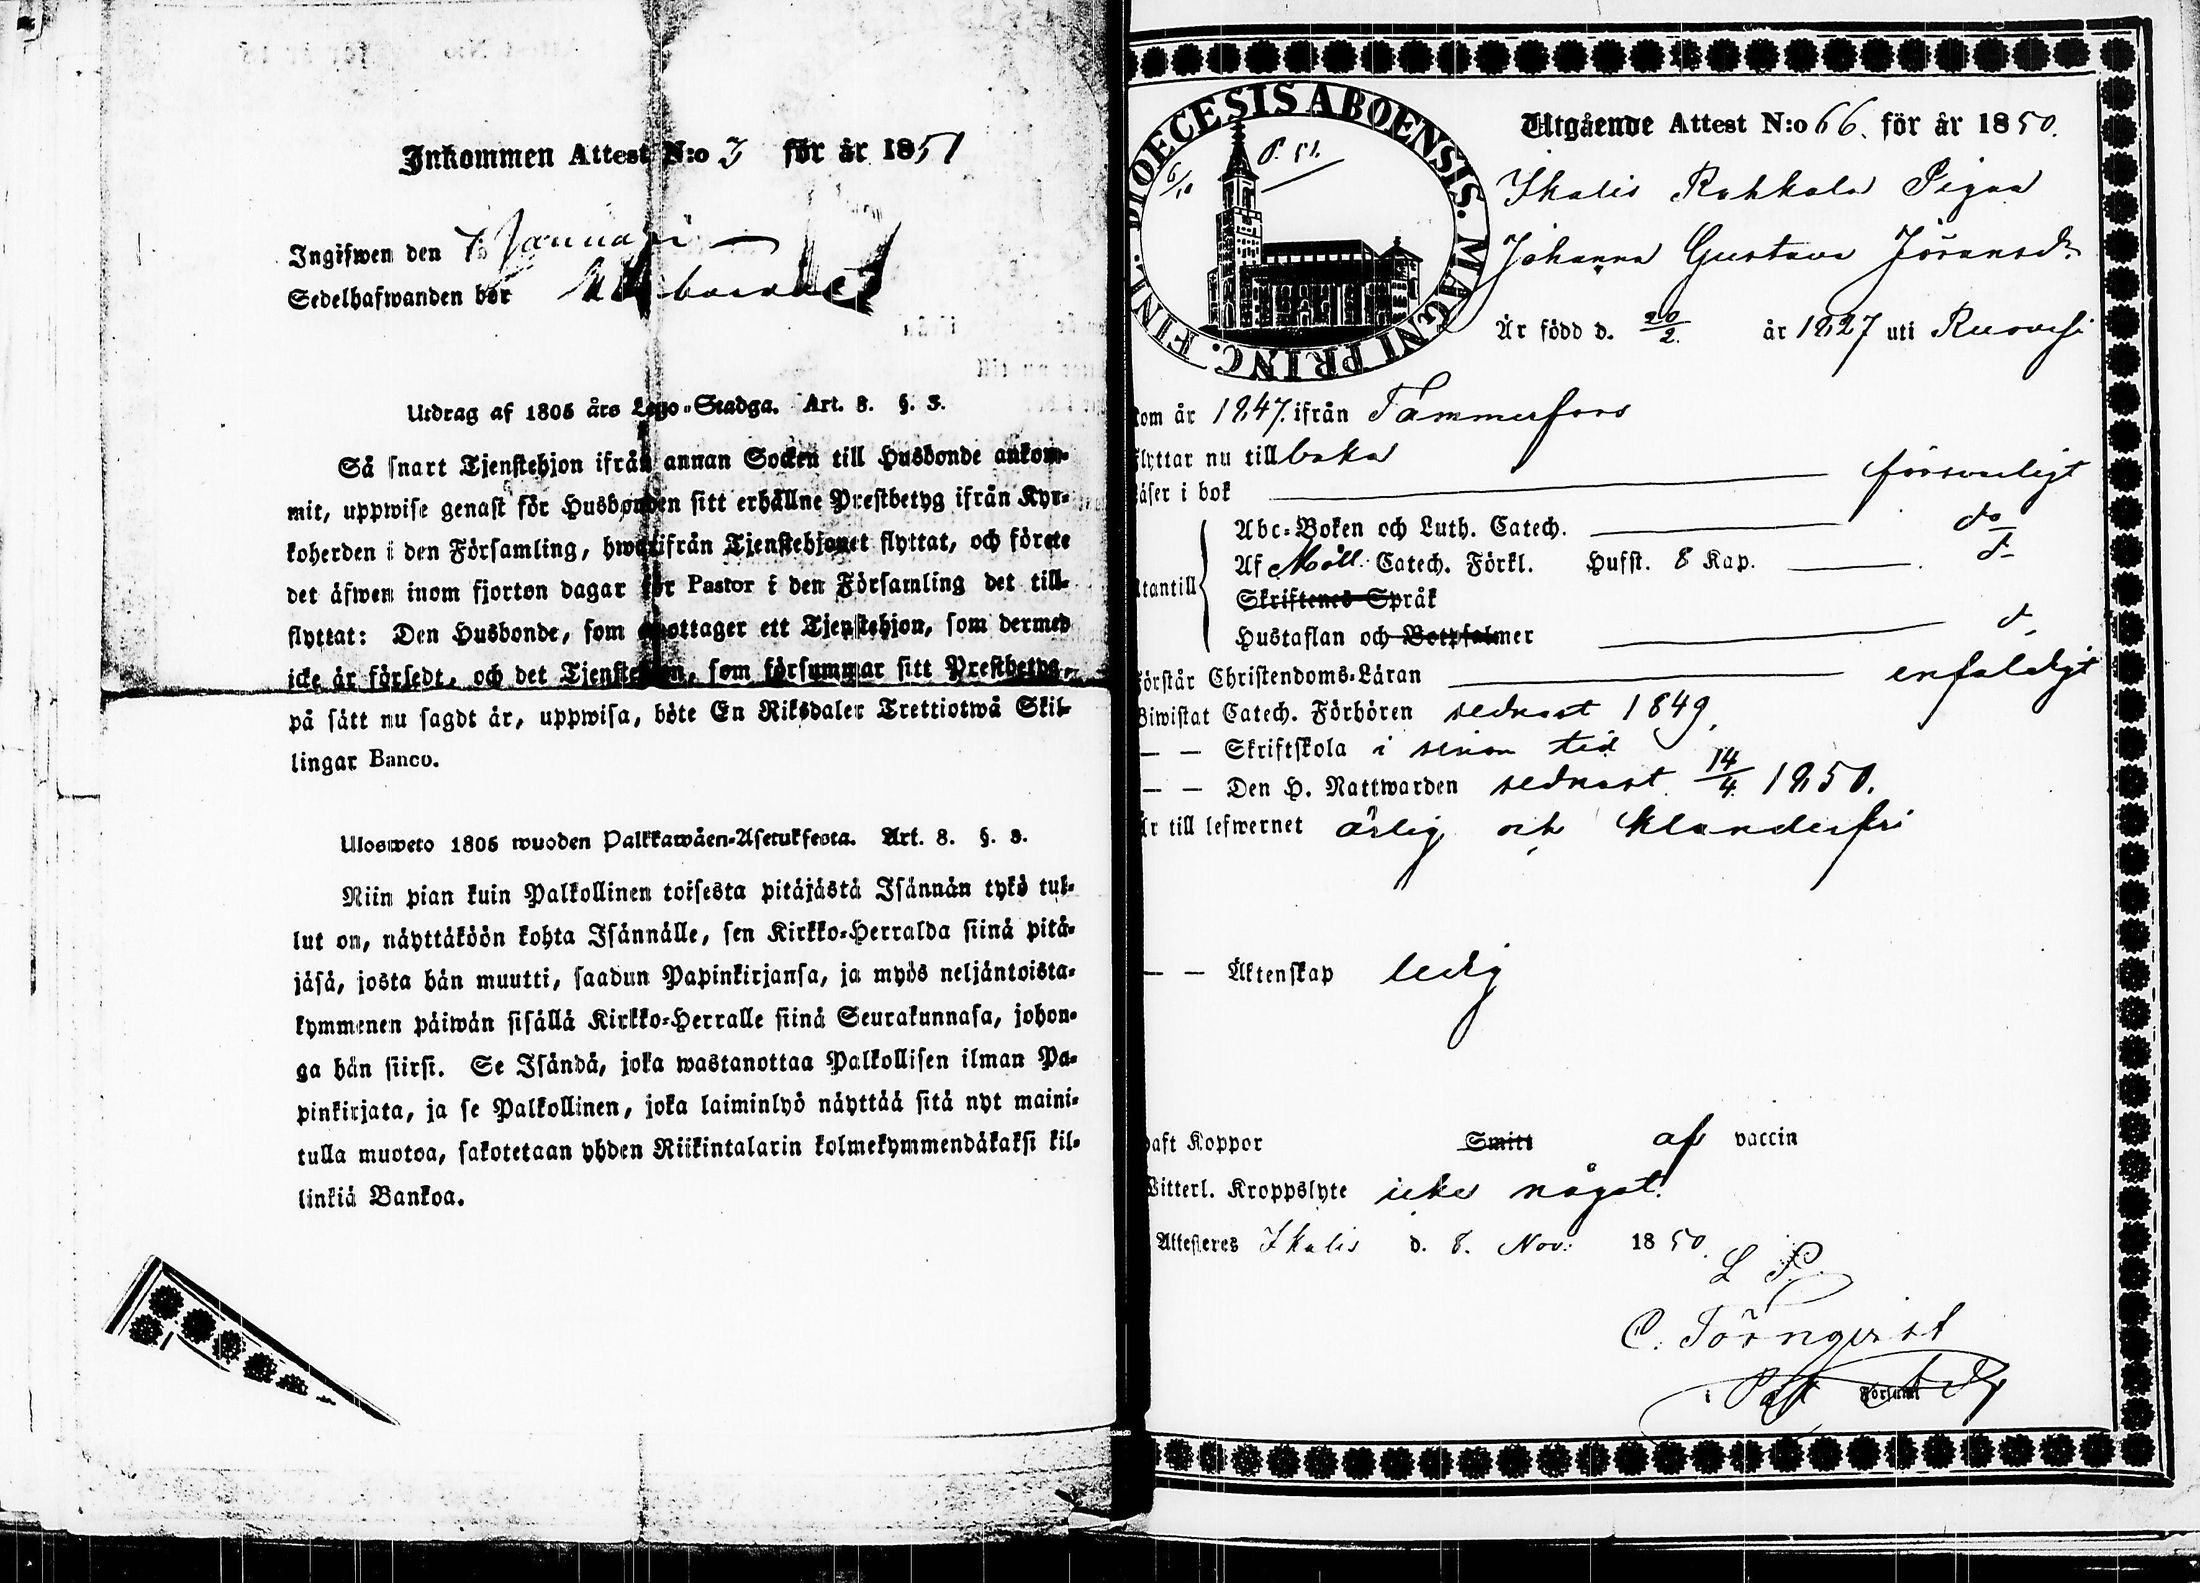 Inkommen Attest N:o 3 för år 1851
Ingifwen den 7 Januari
Sedelhafwanden bor
Utdrag af 1805 års Lego-Stadga. Art. 8. §. 3.
Så snart Tjenstehjon ifrån annan Socken till Husbonde ankom-
mit, uppwise genast för Husbonden sitt erhållne Prestbetyg ifrån Kyr-
koherden i den Församling, hwarifrån Tjenstehjonet flyttat, och förete
det äfwen inom fjorton dagar för Pastor i den Församling det till-
flyttat: Den Husbonde, som emottager ett Tjenstehjon, som dermed
icke är försedt, och det Tjenstehjon, som försummar sitt Prestbetyg,
på sätt nu sagdt är, uppwisa, böte En Riksdaler Trettiotwå Skil-
lingar Banco.
Ulosweto 1805 wuoden Palkkawäen-Asetuksesta. Art. 8. §. 3.
Niin pian kuin Palkollinen toisesta pitäjästä Isännän tykö tul-
lut on, näyttäköön kohta Isännälle, sen Kirkko-Herralda siinä pitä-
jäsä, josta hän muutti, saadun Papinkirjansa, ja myös neljäntoista-
kymmenen päiwän sisällä Kirkko-Herralle siinä Seurakunnasa, johon-
ga hän siirsi. Se Isändä, joka wastanottaa Palkollisen ilman Pa-
pinkirjata, ja se Palkollinen, joka laiminlyö näyttää sitä nyt maini-
tulla muotoa, sakotetaan yhden Riikintalarin kolmekymmendäkaksi kil-
linkiä Bankoa.
DIOECESIS ABOENSIS. MAGNI PRINC. FINL.
P. 51.
6/10
Utgående Attest N:o 66. för år 1850.
Ikalis Rahkala Pigan
Johanna Gustava Jöransdr
Är född d. 20/2. år 1827 uti Ruovesi
kom år 1847. ifrån Tammerfors
flyttar nu tillbaka
läser i bok försvarligt
Abc-Boken och Luth. Catech. do
Utantill Af Möll. Catech. Förkl. Hufst. 8 Kap. d-
Skriftenes Språk
Hustaflan och Botpsalmer d-
förstår Christendoms-Läran enfaldigt
Biwistat Catech. Förhören sednast 1849.
— — Skriftskola i sinom tid
— — Den H. Nattwarden sednast 14/4 1850.
Är till lefwernet ärlig och klanderfri
— — Äktenskap ledig
haft Koppor Smitt af vaccin
Witterl. Kroppslyte icke något.
Attesteres Ikalis d. 8. Nov: 1850.
C. Törnqvist
i Församl